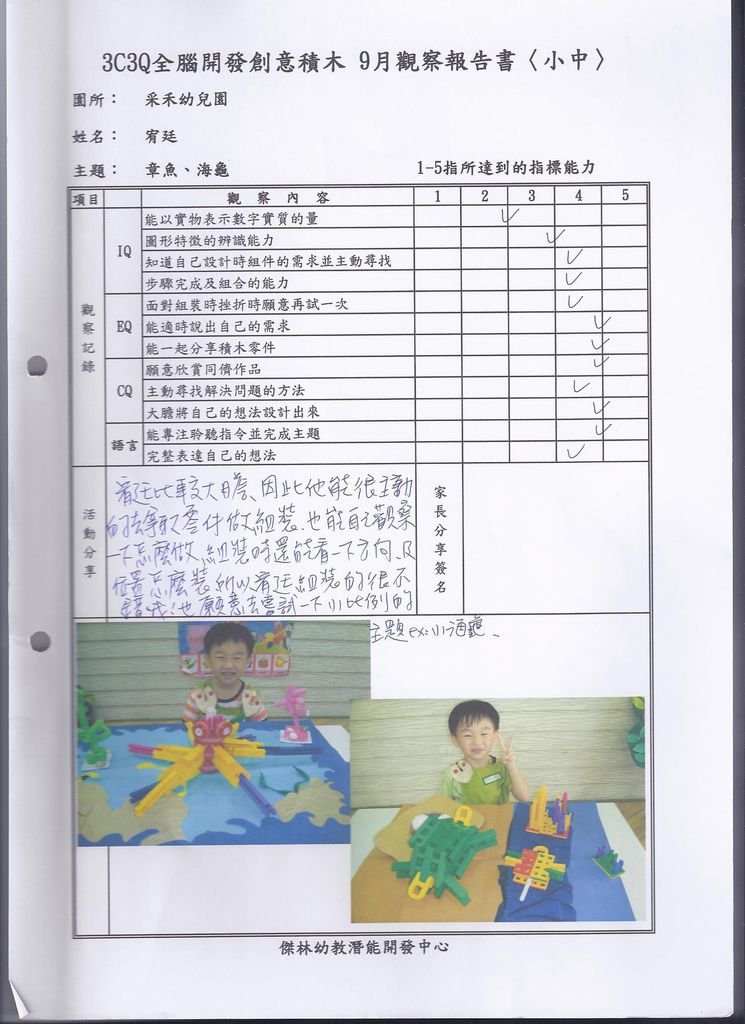 3C3Q全腦開發創意積木 9月觀察報告書〈小中〉
園所： 采禾幼兒園
姓名： 宥廷
主題： 章魚、海龜 1-5指所達到的指標能力
項目 觀察內容 1 2 3 4 5
觀察記錄
IQ
能以實物表示數字實質的量
圖形特徵的辨識能力
知道自己設計時組件的需求並主動尋找
步驟完成及組合的能力
EQ
面對組裝時挫折時願意再試一次
能適時說出自己的需求
能一起分享積木零件
CQ
願意欣賞同儕作品
主動尋找解決問題的方法
大膽將自己的想法設計出來
語言
能專注聆聽指令並完成主題
完整表達自己的想法
活動分享
宥廷比較大膽、因此他能很主動
的去拿取零件做組裝、也能自己觀察
一下怎麼做、組裝時還能看一下方向、及
位置怎麼裝、所以宥廷組裝的很不
錯哦!也願意去嘗試一下小比例的
主題ex:小海龜、
家長分享簽名
傑林幼教潛能開發中心